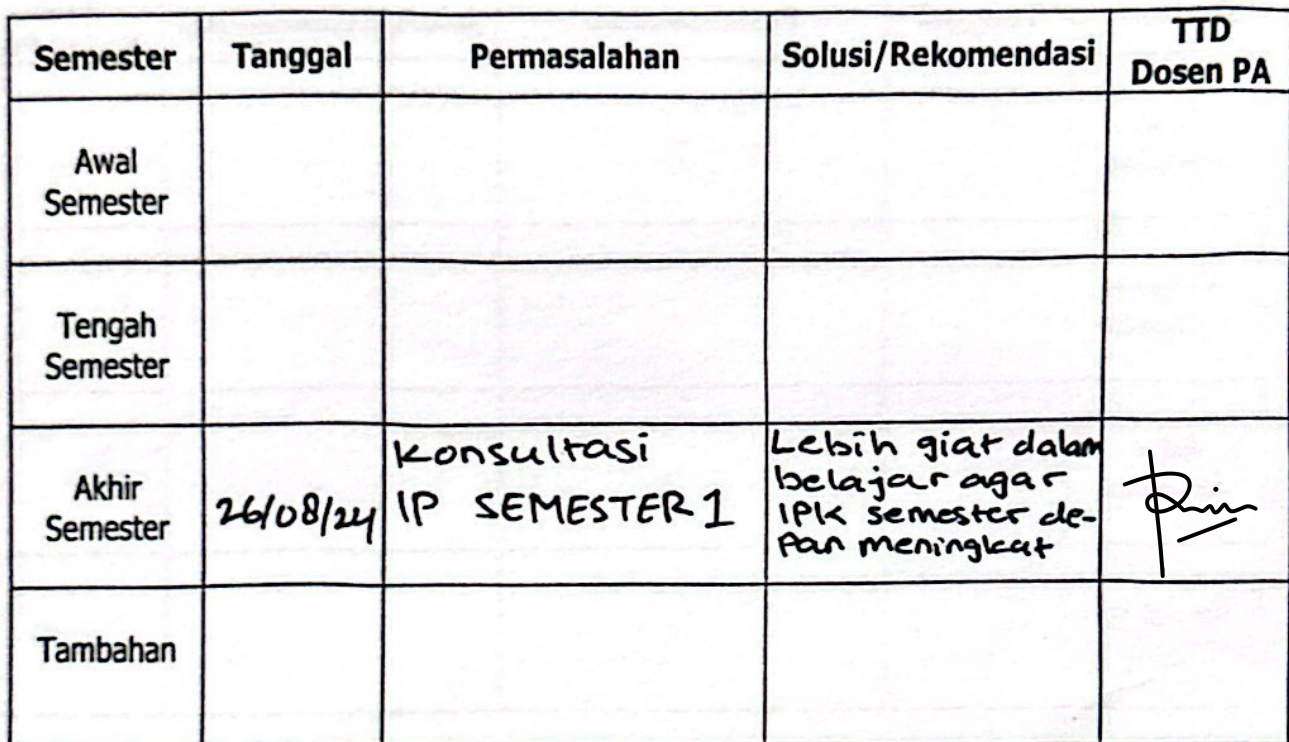 Semester Tanggal Permasalahan Solusi/Rekomendasi TTD Dosen PA
Awal
Semester
Tengah
Semester
Akhir
Semester
26/08/24
Konsultasi
IP SEMESTER 1
Lebih giat dalam
belajar agar
IPK semester de-
pan meningkat
Tambahan